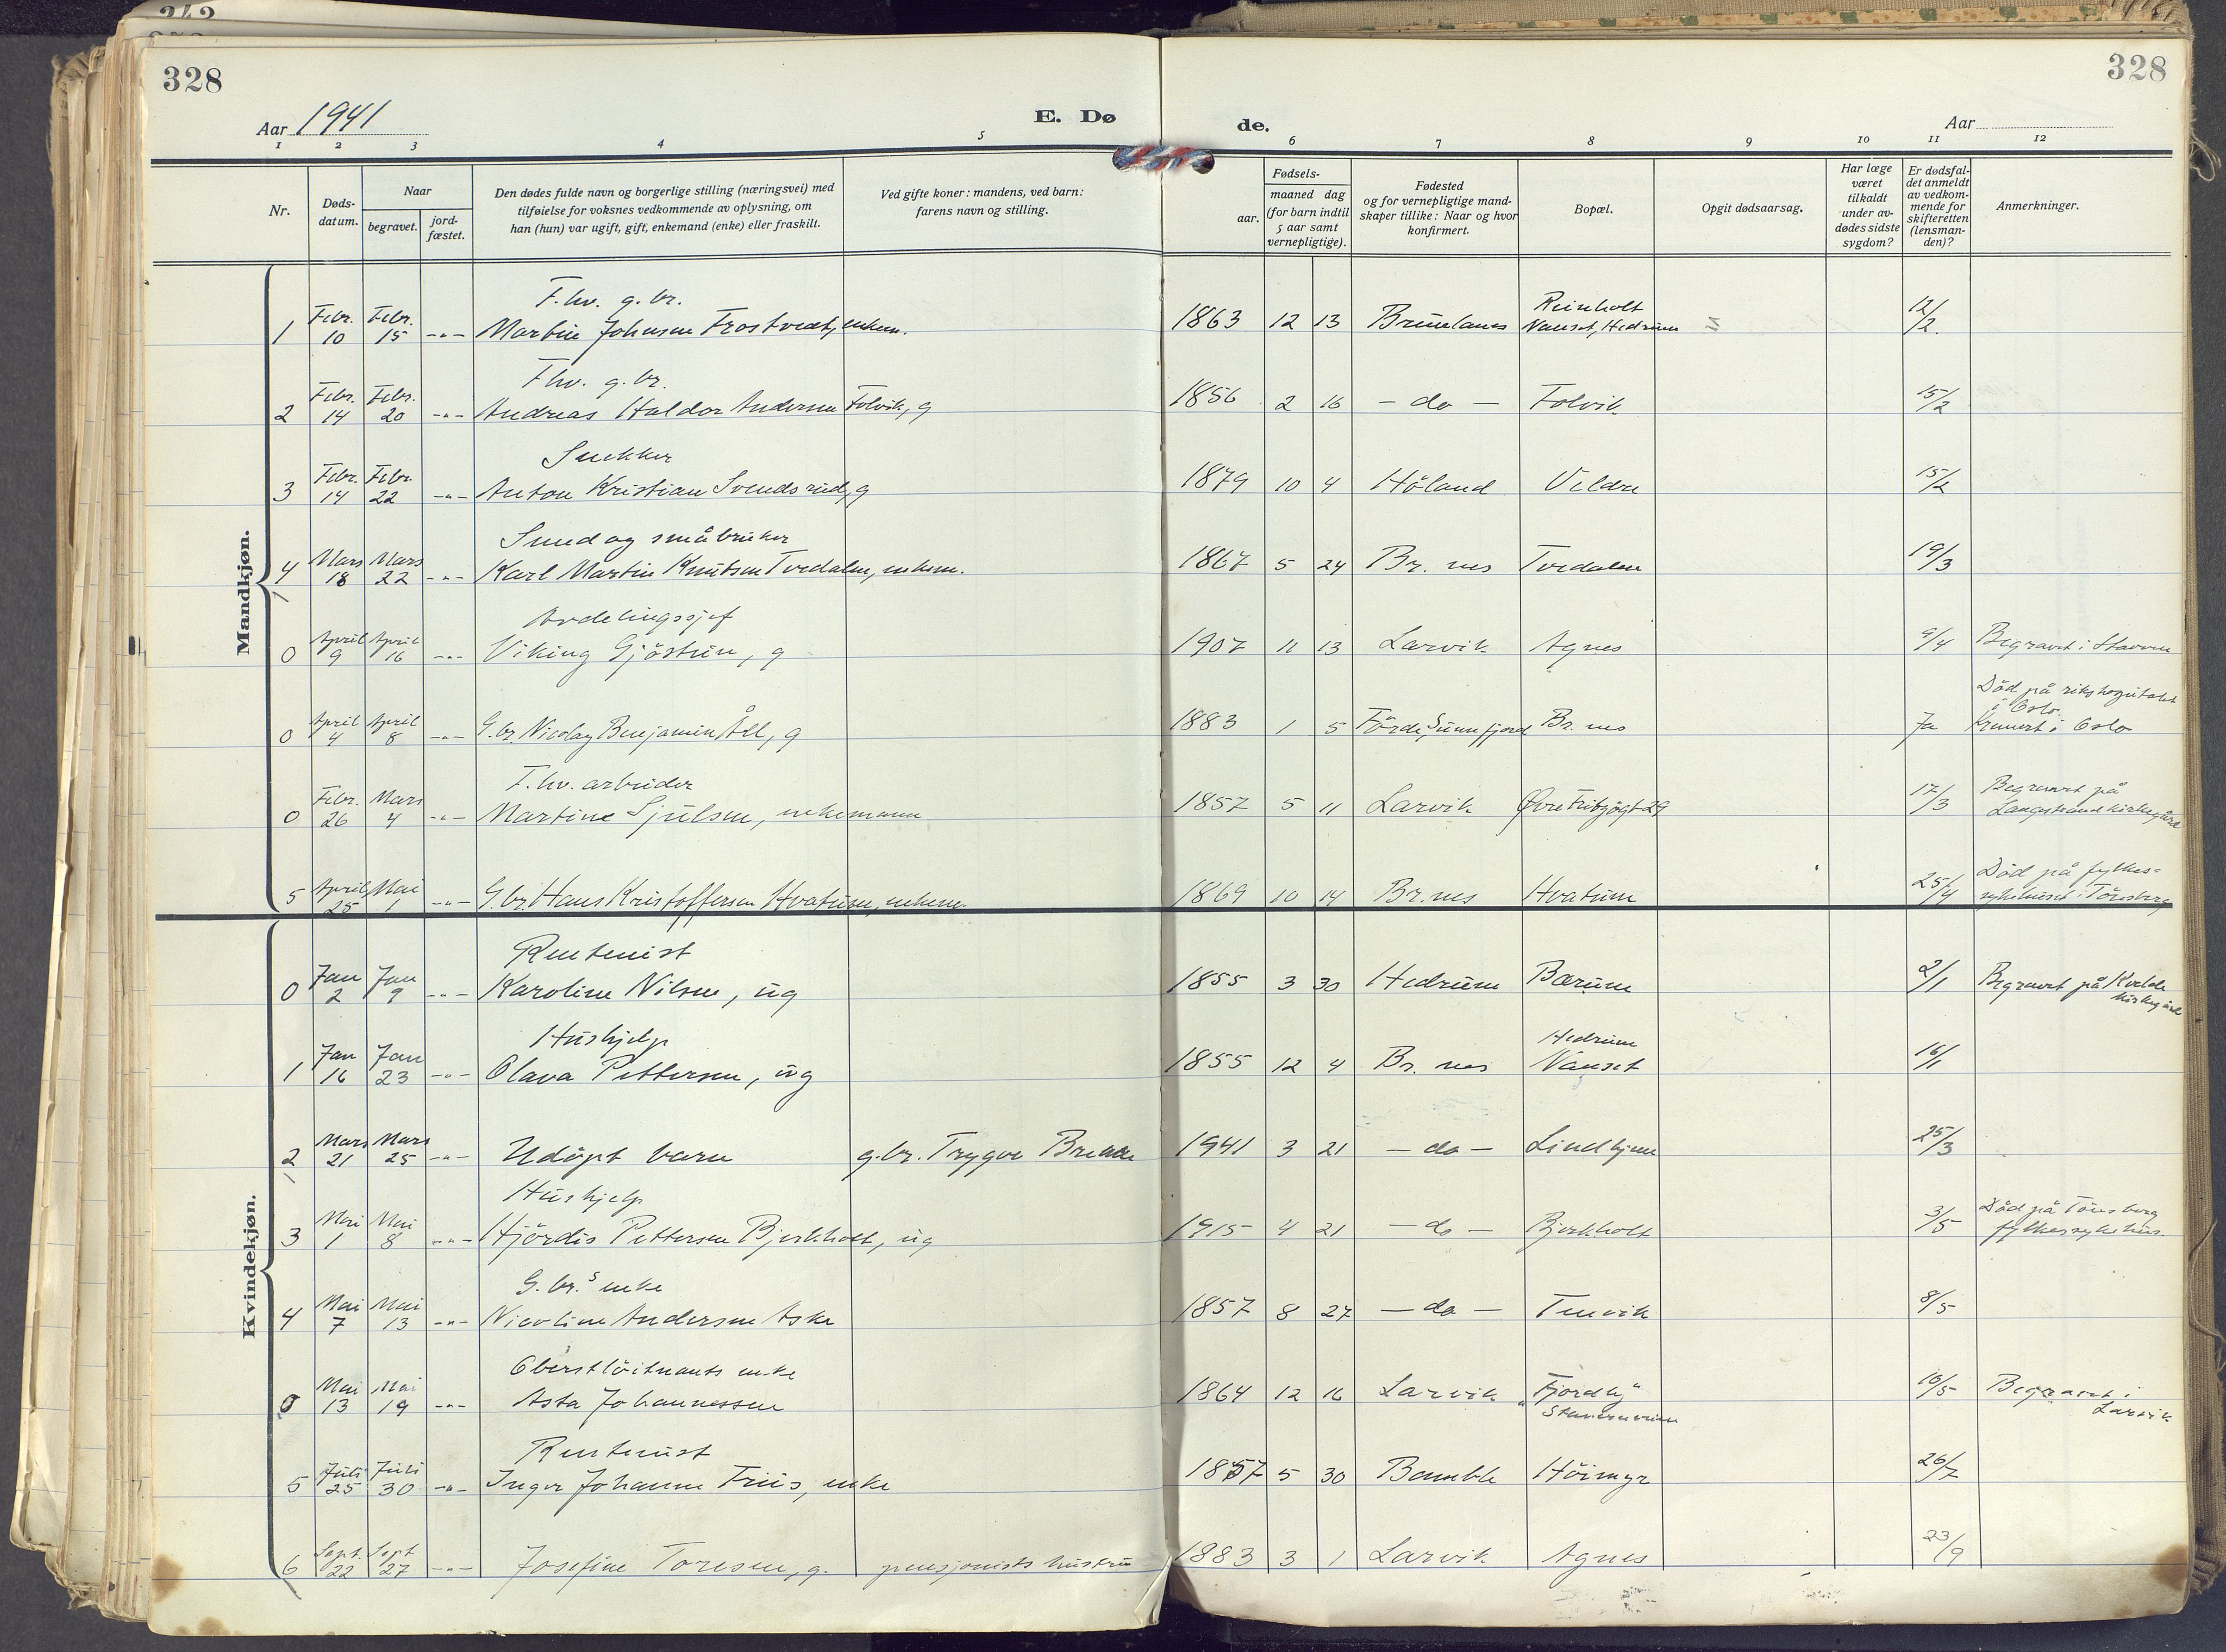 328
328
Aar 1941
E. Dø
de.
Aar
1 2 3 4 5 6 7 8 9 10 11 12
Nr.
Døds-
datum.
Naar
begravet.
jord-
fæstet.
Den dødes fulde navn og borgerlige stilling (næringsvei) med
tilføielse for voksnes vedkommende av oplysning, om
han (hun) var ugift, gift, enkemand (enke) eller fraskilt.
Ved gifte koner: mandens, ved barn:
farens navn og stilling.
Fødsels-
aar.
maaned dag
(for barn indtil
5 aar samt
vernepligtige).
Fødested
og for vernepligtige mand-
skaper tillike: Naar og hvor
konfirmert.
Bopæl.
Opgit dødsaarsag.
Har læge
været
tilkaldt
under av-
dødes sidste
sygdom?
Er dødsfal-
det anmeldt
av vedkom-
mende for
skifteretten
(lensman-
den)?
Anmerkninger.
Mandkjøn.
F.hv. g.br. Reinholt
1 Febr. 10 Febr. 15 -"- Martin Johnsen Frostvedt, enkem. 1863 12 13 Brunlanes Nanset, Hedrum 12/2.
F.hv. g.br.
2 Febr. 14 Febr. 20 -"- Andreas Haldor Andersen Folvik, g 1856 2 16 - do - Folvik 15/2
Snekker
3 Febr. 14 Febr. 22 -"- Anton Kristian Svendsrud, g 1879 10 4 Höland Veldre 15/2
Smed og småbruker
4 Mars 18 Mars 22 -"- Karl Martin Knutsen Tvedalen, enkem. 1867 5 24 Br.nes Tvedalen 19/3
Avdelingssjef
0 April 9 April 16 -"- Viking Gjöstein, g 1907 11 13 Larvik Agnes 9/4 Begravet i Stavern
Död på rikshospitalet
i Oslo.
0 April 4 April 8 -"- G.br. Nicolay Benjamin Åll, g 1883 1 5 Förde, Sunnfjord Br.nes Ja Kremert i Oslo
F.hv. arbeider Begravet på
0 Febr. 26 Mars 4 -"- Martine Sjulsen, enkemann 1857 5 11 Larvik Øvre Fritzøegt 29 17/3 Langestrand kirkegård
Död på fylkes-
5 April 25 Mai 1 -"- G.br. Hans Kristoffersen Hvatum, enkem. 1869 10 14 Br.nes Hvatum 25/4 sykehuset i Tönsberg
Kvindekjøn.
Rentenist
0 Jan 2 Jan 9 -"- Karoline Nilsen, ug 1855 3 30 Hedrum Bærum 2/1 Begravet på Kvelde
kirkegård
Hushjelp Hedrum
1 Jan 16 Jan 23 -"- Olava Pettersen, ug 1855 12 4 Br.nes Nanset 16/1
2 Mars 21 Mars 25 -"- Udöpt barn g.br. Trygve Brekke 1941 3 21 - do - Lindhjem 25/3
Hushjelp Död på Tönsberg
3 Mai 1 Mai 8 -"- Hjördis Pettersen Bjerkholt, ug 1915 4 21 - do - Bjerkholt 3/5 fylkessykehus.
G.br.s enke
4 Mai 7 Mai 13 -"- Nicoline Andersen Aske 1857 8 27 - do - Tenvik 8/5
Oberstlöitnants enke
0 Mai 13 Mai 19 -"- Asta Johannessen 1864 12 16 Larvik "Fjordly" 16/5 Begravet i
Larvik
Rentenist
5 Juli 25 Juli 30 -"- Inger Johanne Friis, enke 1857 5 30 Bamble Höimyr 26/7
6 Sept. 22 Sept 27 -"- Josefine Toresen, g. pensjonists hustru 1883 3 1 Larvik Agnes 23/9